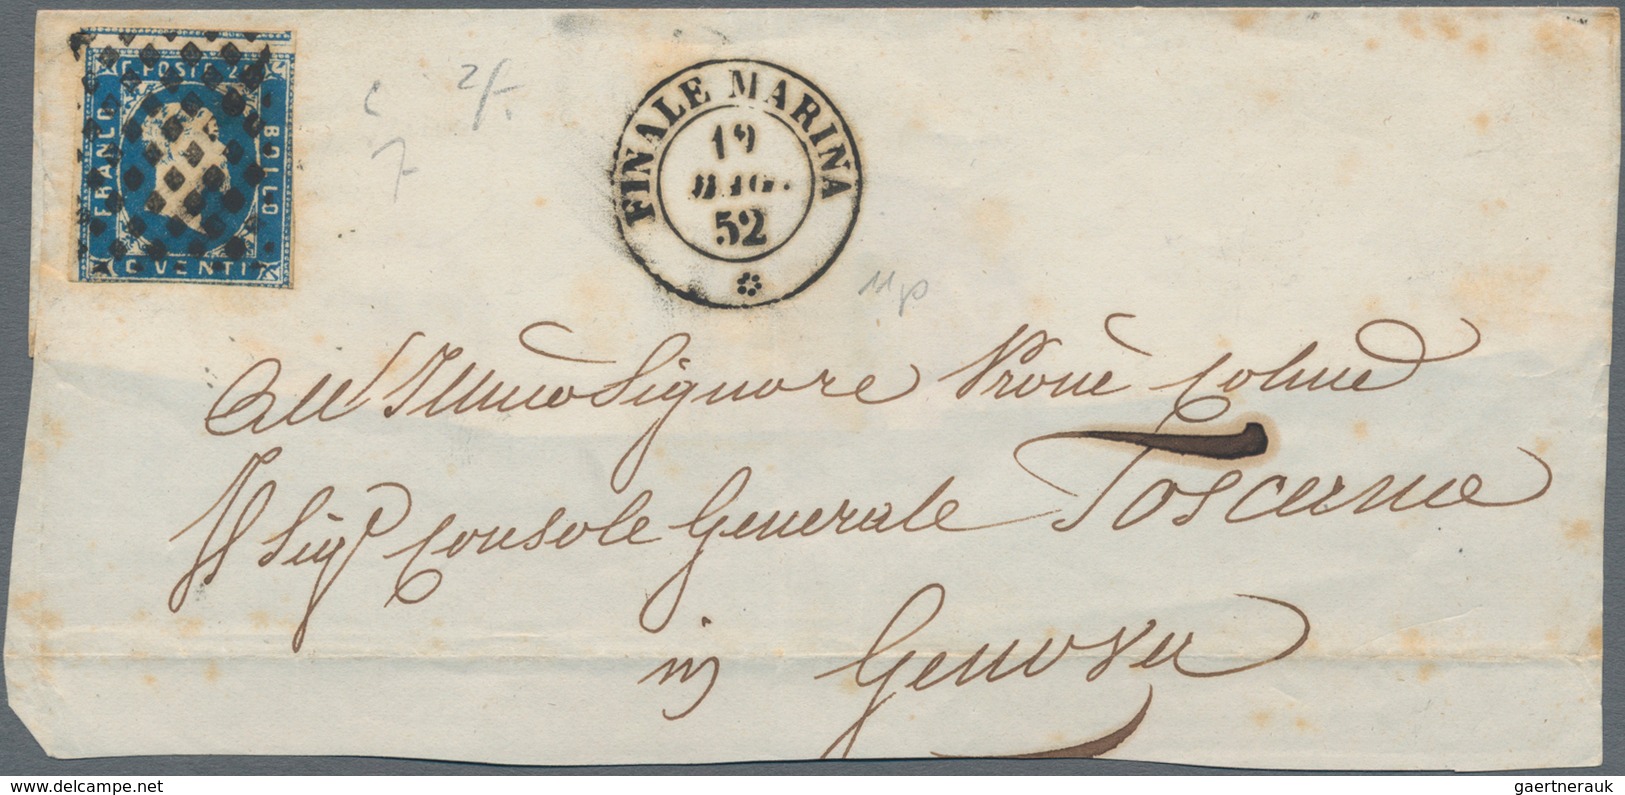 C. POSTE 20
FRANCO
BOLLO
C. VENTI
FINALE MARINA
19
MAG.
52
2/-
7
All' Illmo Signore Prone Colmo
Il Sigr Console Generale Toscano
in Genova
gaertnerauk